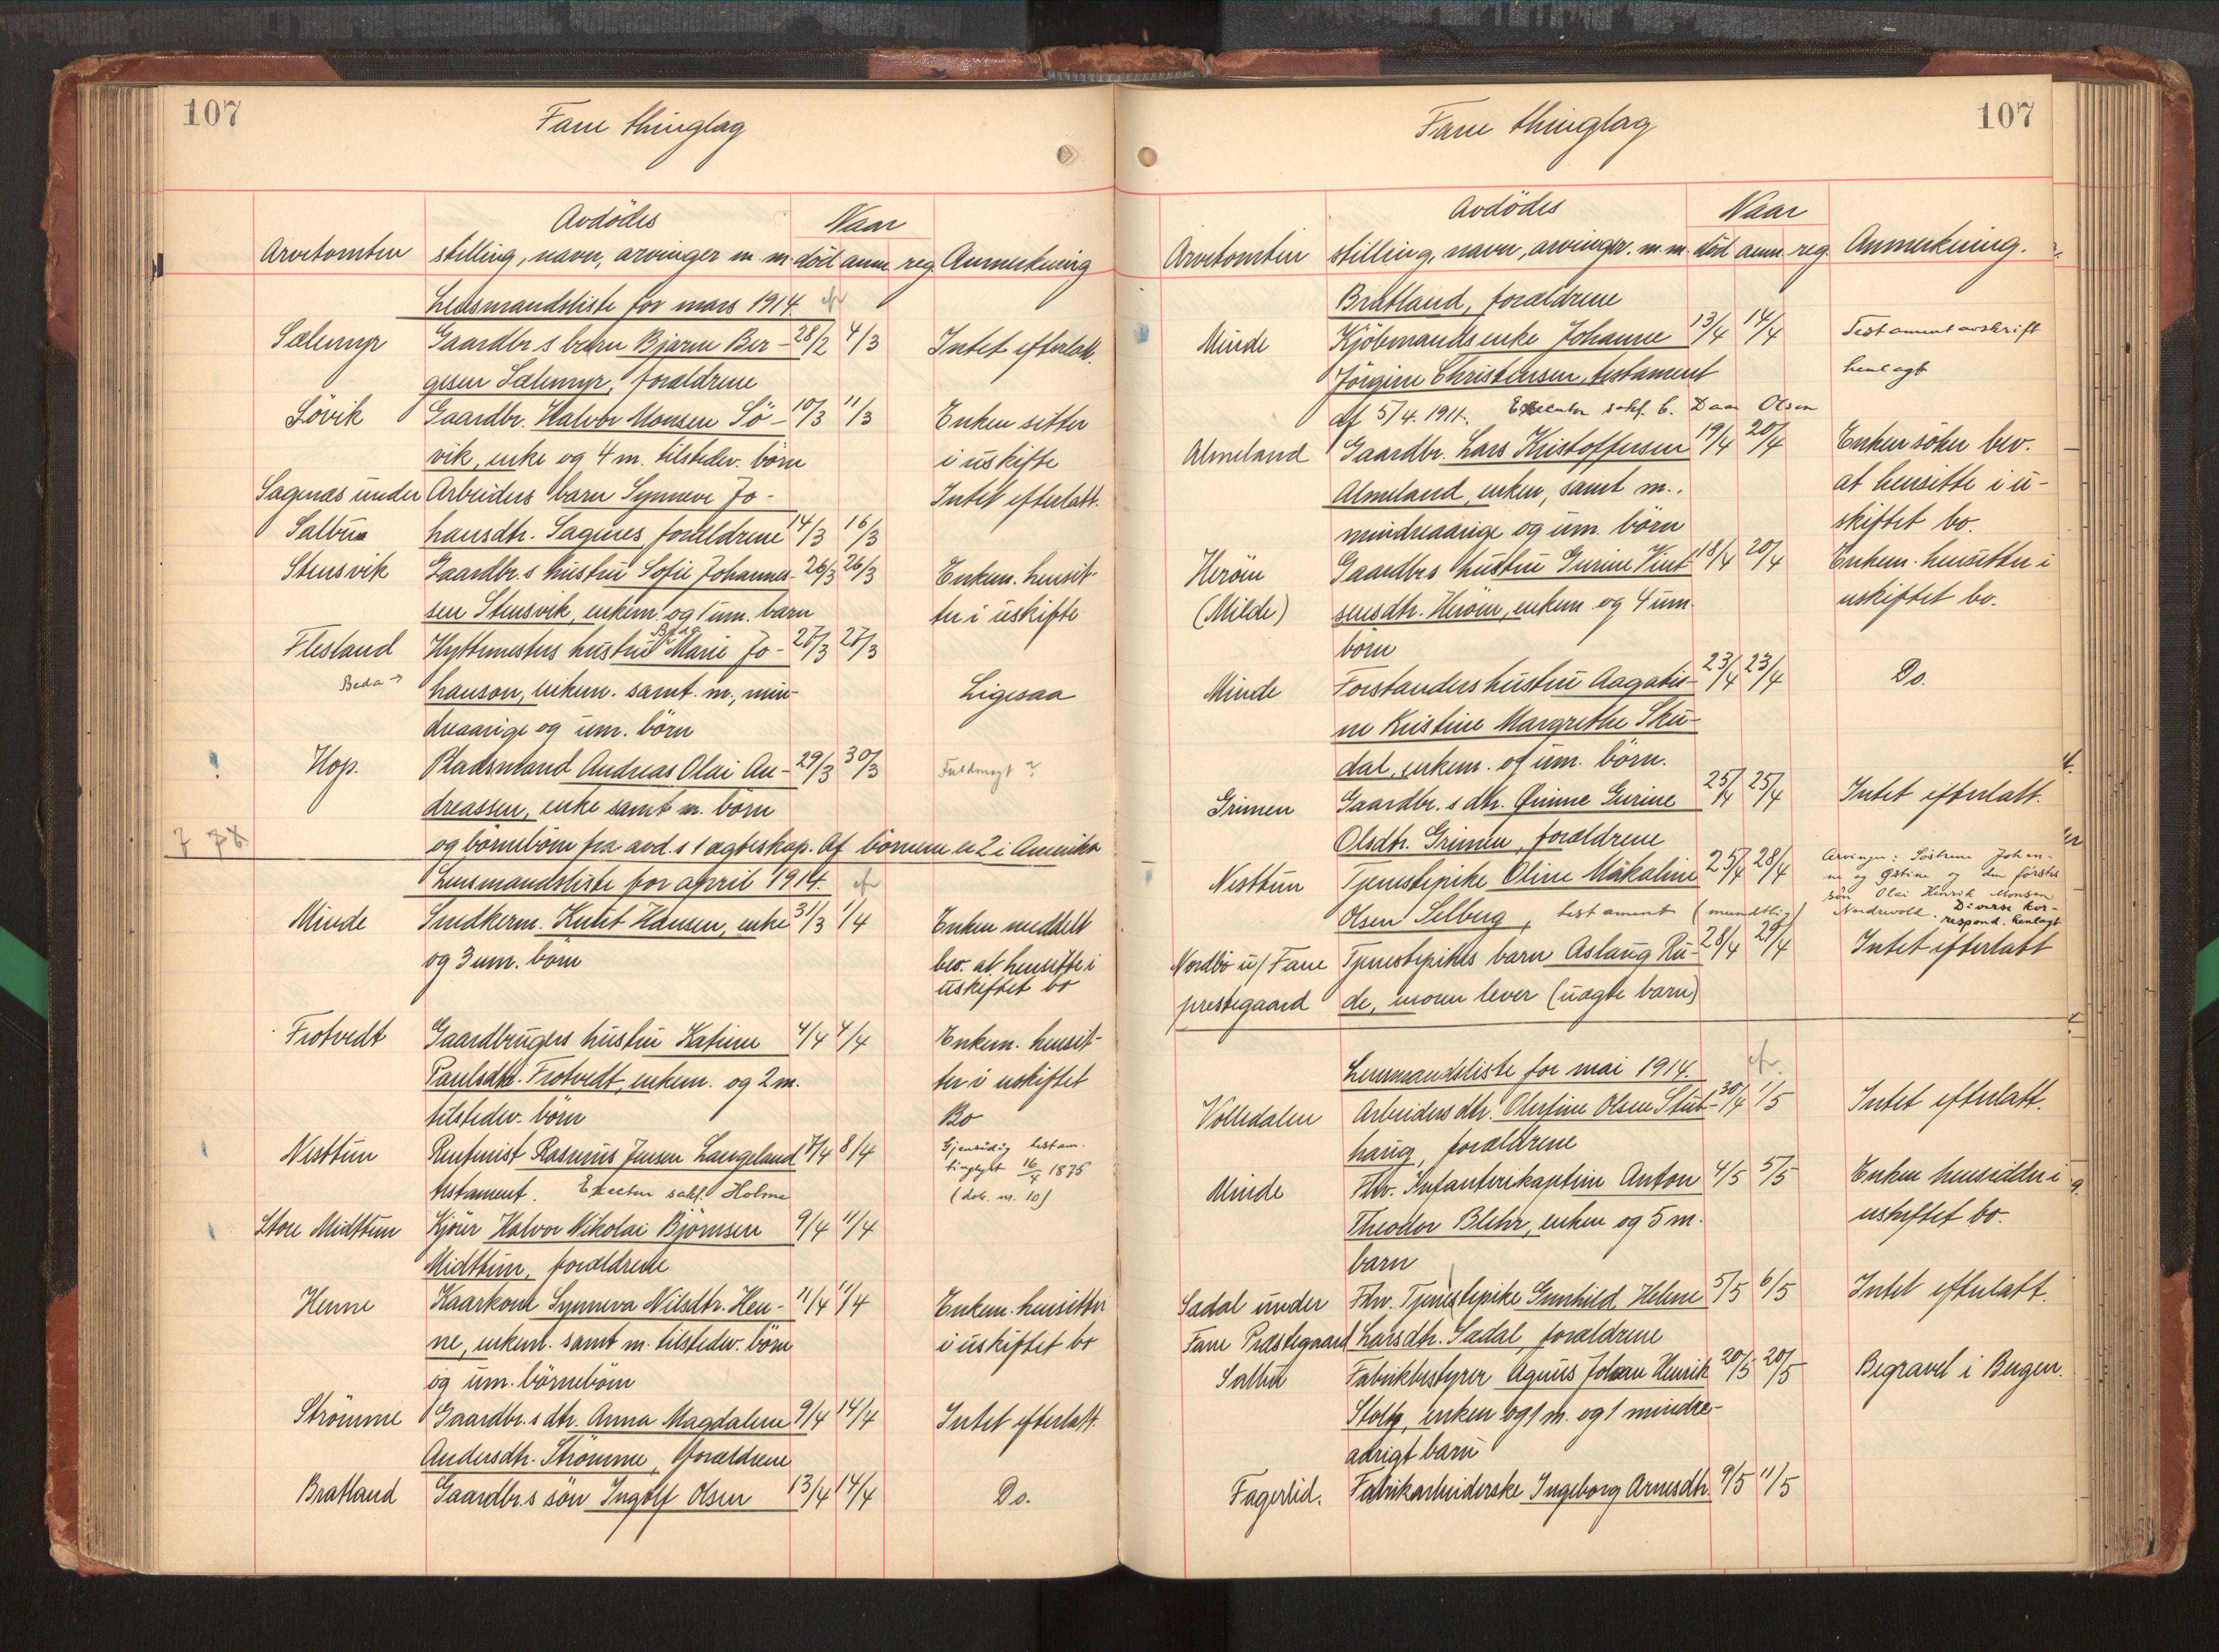 107
Fane thinglag
Avdødes
Naar
Arvetomten stilling, navn, arvinger m. m. død anm. reg. Anmerkning
Lensmandsliste for mars 1914
Sælemyr Gaardbr.s barn Bjarne Bir- 28/2 4/3 Intet efterlatt.
gesen Sælemyr, forældrene
Søvik Gaardbr. Halvor Monsen Sø- 10/3 11/3 Enken sitter
vik, enke og 4 m. tilstedev. børn i uskifte
Sagenæs under Arbeiders barn Synneve Jo- Intet efterlatt.
Salbu hansdtr. Sagnes, forældrene 14/3 16/3
Stensvik Gaardbr.s hustru Sofie Johannes- 26/3 26/3 Enkem. hensit-
sen Stensvik, enkem. og 1 um. barn ter i uskifte
Flesland Hyttemesters hustru Marie Jo- 26/3 27/3
Beda hanson, enkem. samt m., min- Ligesaa
dreaarige og um. börn
Hop. Pladsmand Andreas Olai An- 29/3 30/3 Fuldmagt?
dreassen, enke samt m. börn
og börnebörn fra avd.s 1 ægteskap. Af börnene er 2 i Amerika
Lensmandsliste for april 1914.
Minde Snidkerm. Knut Hansen, enke 31/3 1/4 Enken meddelt
og 3 um. børn bev. at hensitte i
uskiftet bo
Frotvedt Gaardbrugers hustru Katrine 4/4 4/4 Enkem. hensit-
Paulsdtr. Frotvedt, enkem. og 2 m. ter i uskiftet
tilstedev. børn Bo
Nesttun Rentenist Rasmus Jensen Langeland 7/4 8/4 Gjensidig testam.
testament. Executor sakf. Holme tinglyst 16/4 1875
(dok. nr. 10)
Store Midttun Kjører Halvor Nikolai Bjørnsen 9/4 11/4
Midttun, forældrene
Henne Kaarkone Synneva Nilsdtr. Hen- 11/4 11/4 Enkem. hensitter
ne, enkem. samt m. tilstedev. børn i uskiftet bo
og um. børnebørn
Strømme Gaardbr.s dtr. Anna Magdalene 9/4 14/4 Intet efterlatt.
Andersdtr. Strømme, forældrene
Bratland Gaardbr.s søn Ingolf Olsen 13/4 14/4 Do.
107
Fane thinglag
Avdødes
Naar
Arvetomten stilling, navn, arvinger. m. m. død anm. reg. Anmerkning.
Bratland, forældrene
Minde Kjøbmandsenke Johanne 13/4 14/4 Testamentavskrift
Jørgine Christensen, testament henlagt
af 5/4. 1911. Executor sakf. C. Daae Olsen
Almeland Gaardbr. Lars Kristoffersen 19/4 20/4 Enken søker bev.
Almeland, enken, samt m., at hensitte i u-
mindreaarige og um. børn skiftet bo.
Herøin Gaardbrs hustru Gurine Vint- 18/4 20/4 Enkem. hensitter i
(Milde) sensdtr. Herøin, enkem og 4 um. uskiftet bo.
børn
Minde Forstanders hustru Aagati- 23/4 23/4 Do.
ne Kristine Margrethe Sku-
dal, enkem. og um. børn.
Grimen Gaardbr.s dtr. Gurine 25/4 25/4 Intet efterlatt.
Olsdtr. Grimen, forældrene
Nesttun Tjenestepike Oline Måkaline 25/4 28/4 Arvinger: Søstrene Johan-
ne og Østine og den førstes
Olsen Selberg, testament (mundtlig) søn Olai Henrik Monsen
Nordrevold. Diverse kor-
respond. henlagt
Nordbø u/ Fane Tjenestepikes barn Aslaug Ru- 28/4 29/4 Intet efterlatt
prestegaard de, moren lever (uægte barn)
Lensmandsliste for mai 1914.
Volledalen Arbeiders dtr. Olufine Olsen Stub- 30/4 1/5 Intet efterlatt.
haug, forældrene
Minde Fhv. Infanterikaptein Anton 4/5 5/5 Enken hensidder i
Theodor Blehr, enken og 5 m. uskiftet bo.
barn
Sadal under Fhv. Tjenestepike Gunhild Helene 5/5 6/5 Intet efterlatt.
Fane Præstegaard Larsdtr. Sadal, forældrene
Salbu Fabrikbestyrer Agnus Johan Henrik 20/5 20/5 Begravet i Bergen.
Stoltz, enken og 1 m. og 1 mindre-
aarigt barn
Fagerlid. Fabrikarbeiderske Ingeborg Arnesdtr. 9/5 11/5